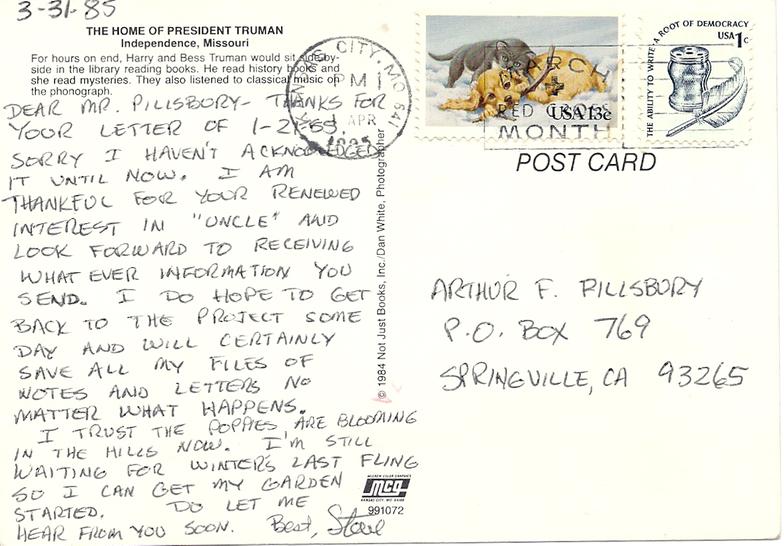 3-31-85
THE HOME OF PRESIDENT TRUMAN
Independence, Missouri
For hours on end, Harry and Bess Truman would sit side-by-
side in the library reading books. He read history books and
she read mysteries. They also listened to classical music on
the phonograph.
DEAR MR. PILLSBURY- THANKS FOR
YOUR LETTER OF 1-21-85.
SORRY I HAVEN'T ACKNOWLEDGED
IT UNTIL NOW. I AM
THANKFUL FOR YOUR RENEWED
INTEREST IN "UNCLE" AND
LOOK FORWARD TO RECEIVING
WHAT EVER INFORMATION YOU
SEND. I DO HOPE TO GET
BACK TO THE PROJECT SOME
DAY AND WILL CERTAINLY
SAVE ALL MY FILES OF
NOTES AND LETTERS NO
MATTER WHAT HAPPENS.
I TRUST THE POPPIES ARE BLOOMING
IN THE HILLS NOW. I'M STILL
WAITING FOR WINTER'S LAST FLING
SO I CAN GET MY GARDEN
STARTED. DO LET ME
HEAR FROM YOU SOON. Best, Steve
© 1984 Not Just Books, Inc./Dan White, Photographer
KANSAS CITY, MO 641
PM 1
APR
1985
MARCH
RED CROSS
MONTH
USA 13c
THE ABILITY TO WRITE A ROOT OF DEMOCRACY
USA 1c
POST CARD
ARTHUR F. PILLSBURY
P.O. BOX 769
SPRINGVILLE, CA 93265
mcg
991072